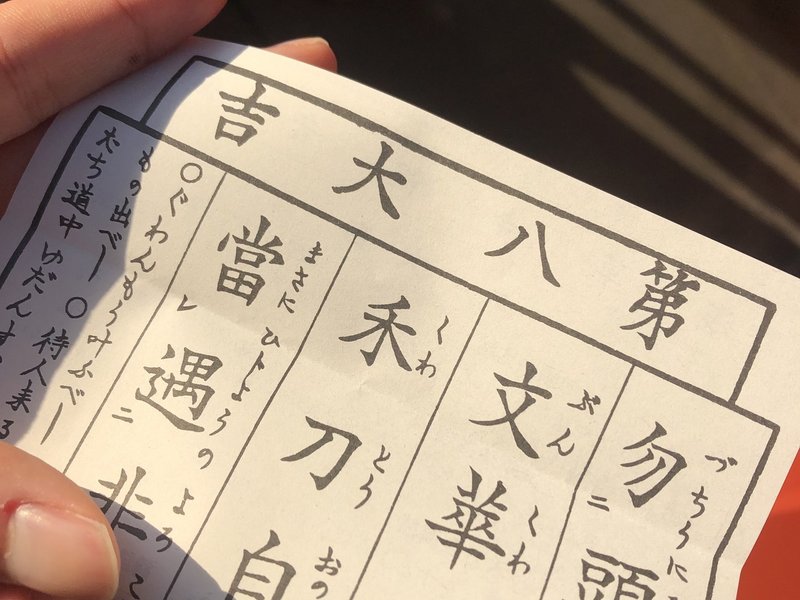 第八大吉
勿頭
づちうに
二
文華
ぶんくわ
禾刀自
くわとうおの
當遇非
まさにひとようのよろこ
レ二
○ぐわんもう叶ふべし
もの出べし ○待人来る
たち道中ゆだんす